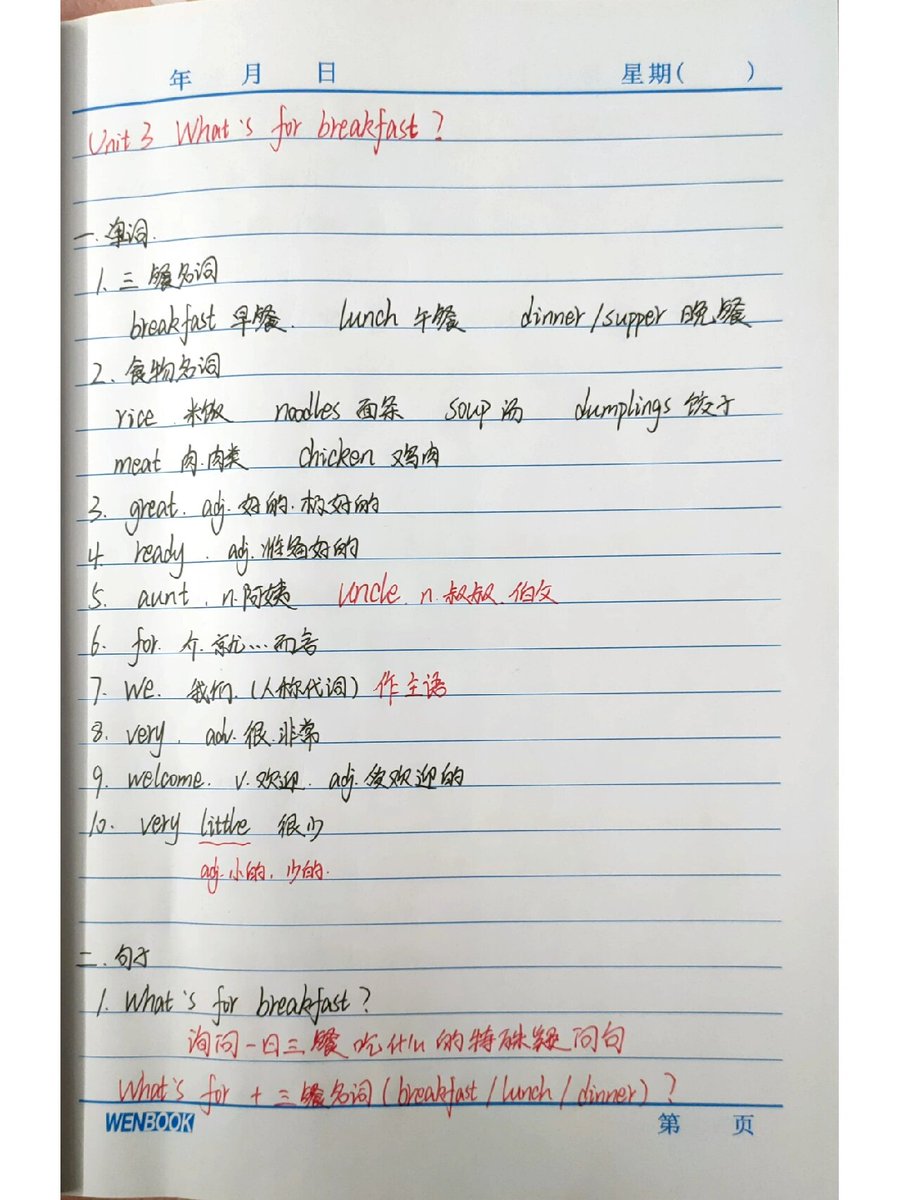 年 月 日 星期( )
Unit 3 What's for breakfast?
一.单词.
1.三餐名词
breakfast 早餐. lunch 午餐 dinner/supper 晚餐
2.食物名词
rice 米饭 noodles 面条 soup 汤 dumplings 饺子
meat 肉.肉类 chicken 鸡肉
3. great. adj.好的.极好的
4. ready. adj.准备好的
5. aunt. n.阿姨 uncle. n.叔叔.伯父
6. for. 介.就…而言
7. we. 我们.(人称代词) 作主语
8. very. adv.很.非常
9. welcome. v.欢迎. adj.受欢迎的
10. very little 很少
adj.小的.少的.
二.句子
1. What's for breakfast?
询问一日三餐吃什么的特殊疑问句
What's for + 三餐名词(breakfast/lunch/dinner)?
WENBOOK 第 页